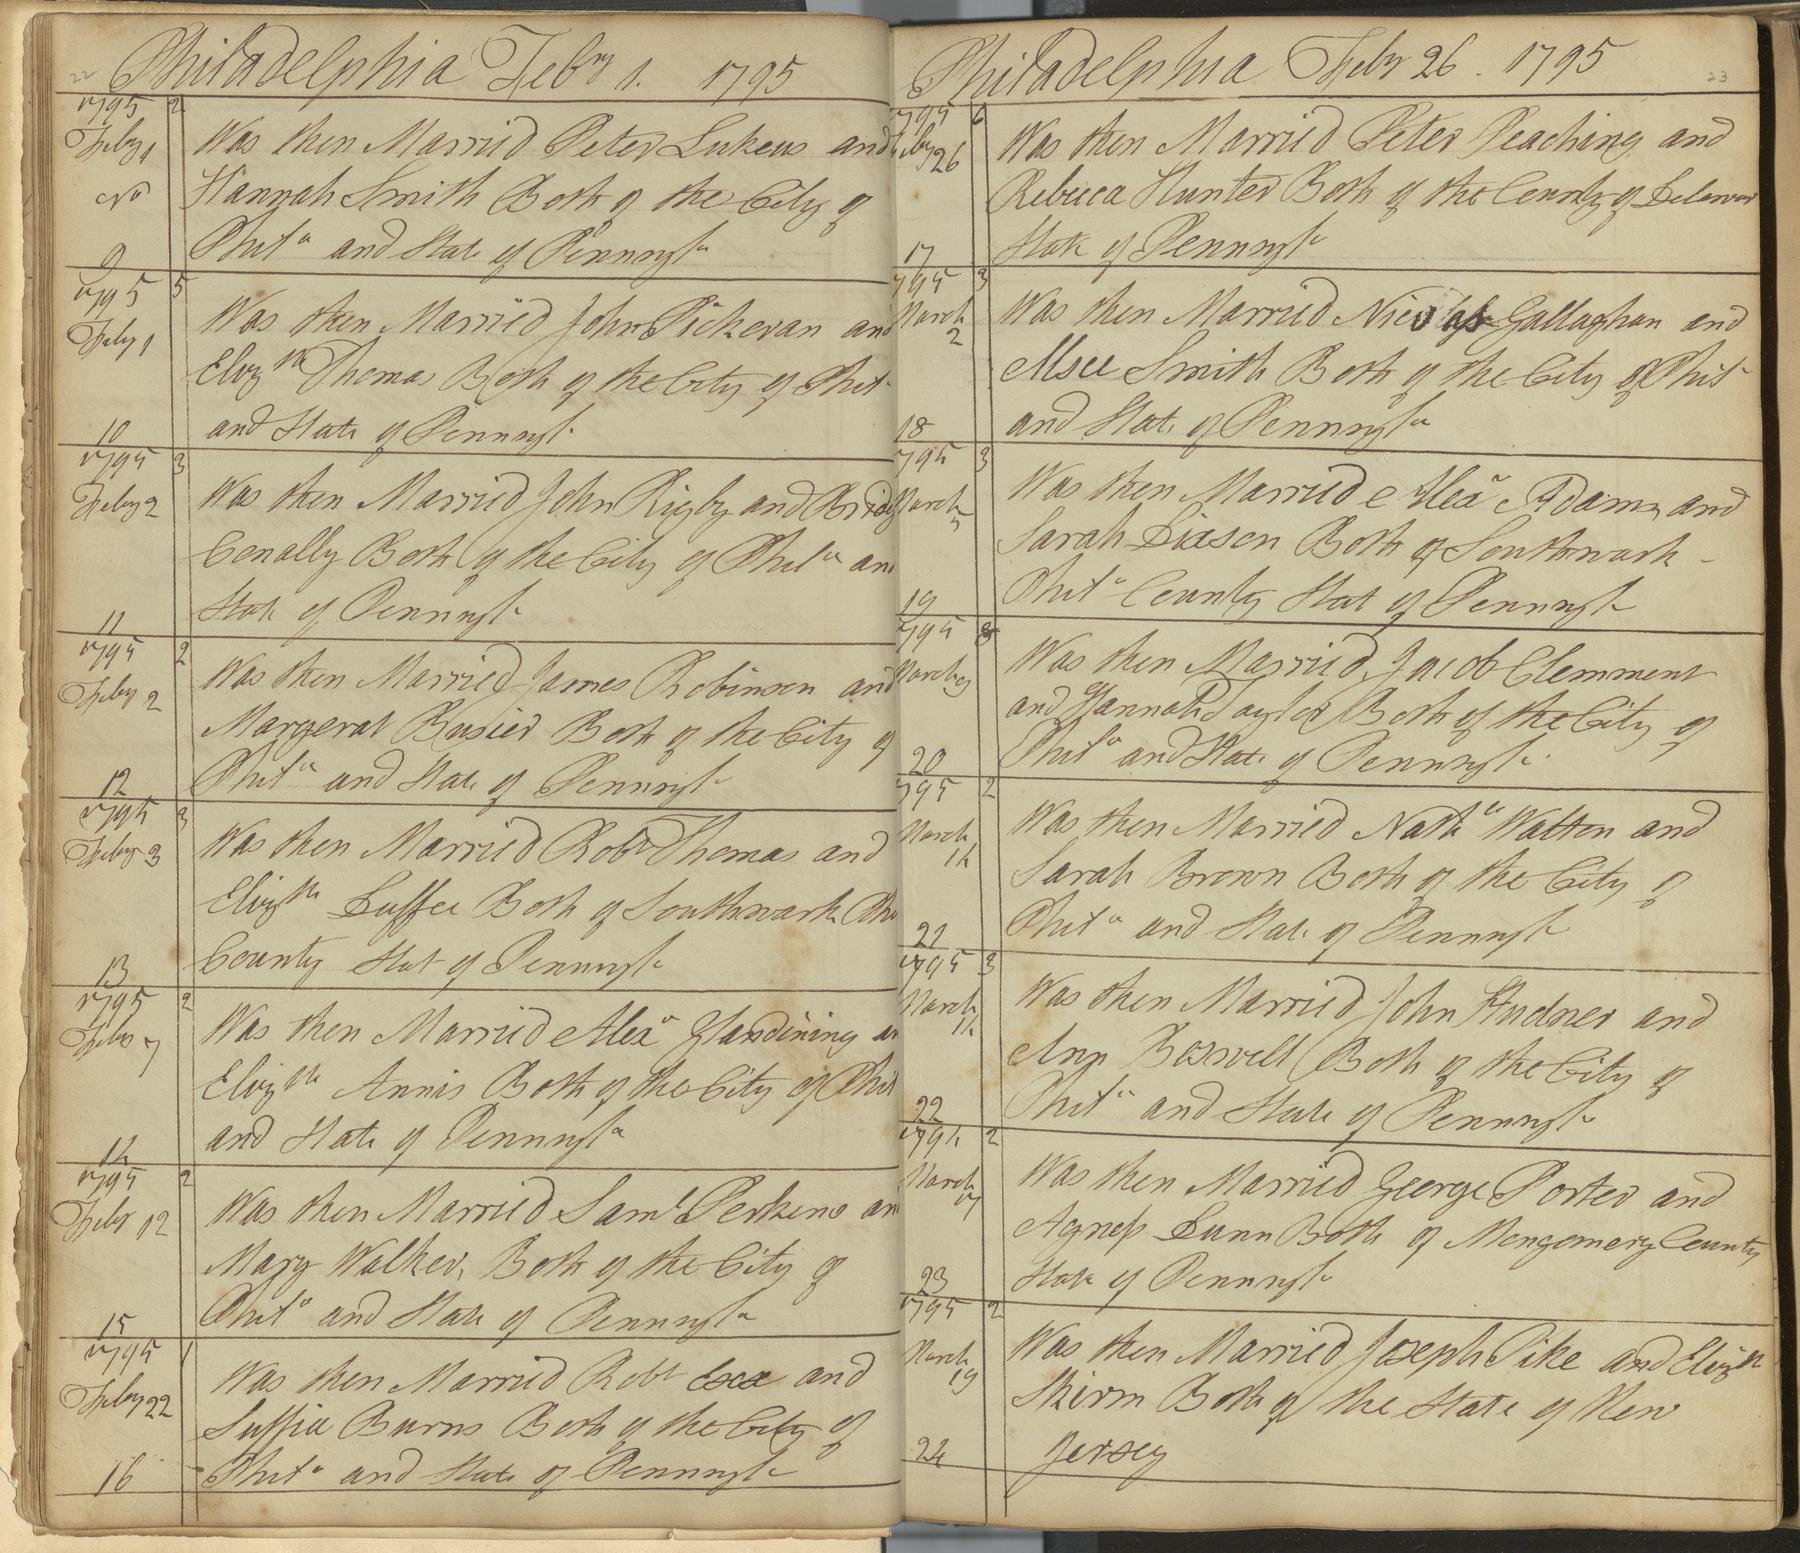 22
Philadelphia Feby 1. 1795
1795 2
Feby 1
No
9
Was then Married Peter Lukens and
Hannah Smith Both of the City of
Phila and State of Pennsyla
1795 5
Feby 1
10
Was then Married John Pickeran and
Elizth Thomas Both of the City of Phila
and State of Pennsyla
1795 3
Feby 2
11
Was then Married John Rigby and Bridg
Conally Both of the City of Phila and
State of Pennsyla
1795 2
Feby 2
12
Was then Married James Robinson and
Margerat Busier Both of the City of
Phila and State of Pennsyla
1795 3
Feby 3
13
Was then Married Robt Thomas and
Elizth Duffee Both of Southwark Phi
County Stat of Pennsyla
1795 2
Feby 7
14
Was then Married Alexr Glandining an
Elizth Annis Both of the City of Phil
and State of Pennsyla
1795 2
Feby 12
15
Was then Married Saml Perkins an
Mary Walker, Both of the City of
Phila and State of Pennsyla
1795 1
Feby 22
16
Was then Married Robt and
Suffia Burns Both of the City of
Phila and State of Pennsyla
Philadelphia Feby 26. 1795
23
1795 6
Feby 26
17
Was then Married Peter Peaching and
Rebecca Hunter Both of the County of Delawar
State of Pennsyla
1795 3
March 2
18
Was then Married Nicolas Gallaghan and
Alsee Smith Both of the City of Phila
and State of Pennsyla
1795 3
March 5
19
Was then Married Alexr Adams and
Sarah Dixson Both of Southwark -
Phila County Stat of Pennsyla
1795 3
March 9
20
Was then Married Jacob Clemment
and Hannah Taylor Both of the City of
Phila and State of Pennsyla
1795 2
March 14
21
Was then Married Nathn Watton and
Sarah Brown Both of the City of
Phila and State of Pennsyla
1795 3
March 14
22
Was then Married John Studner and
Ann Boswell Both of the City of
Phila and State of Pennsyla
1795 2
March 17
23
Was then Married George Porter and
Agness Lunn Both of Mongomery County
State of Pennsyla
1795 2
March 19
24
Was then Married Joseph Pike and Elizth
Skirm Both of the State of New
Jersey